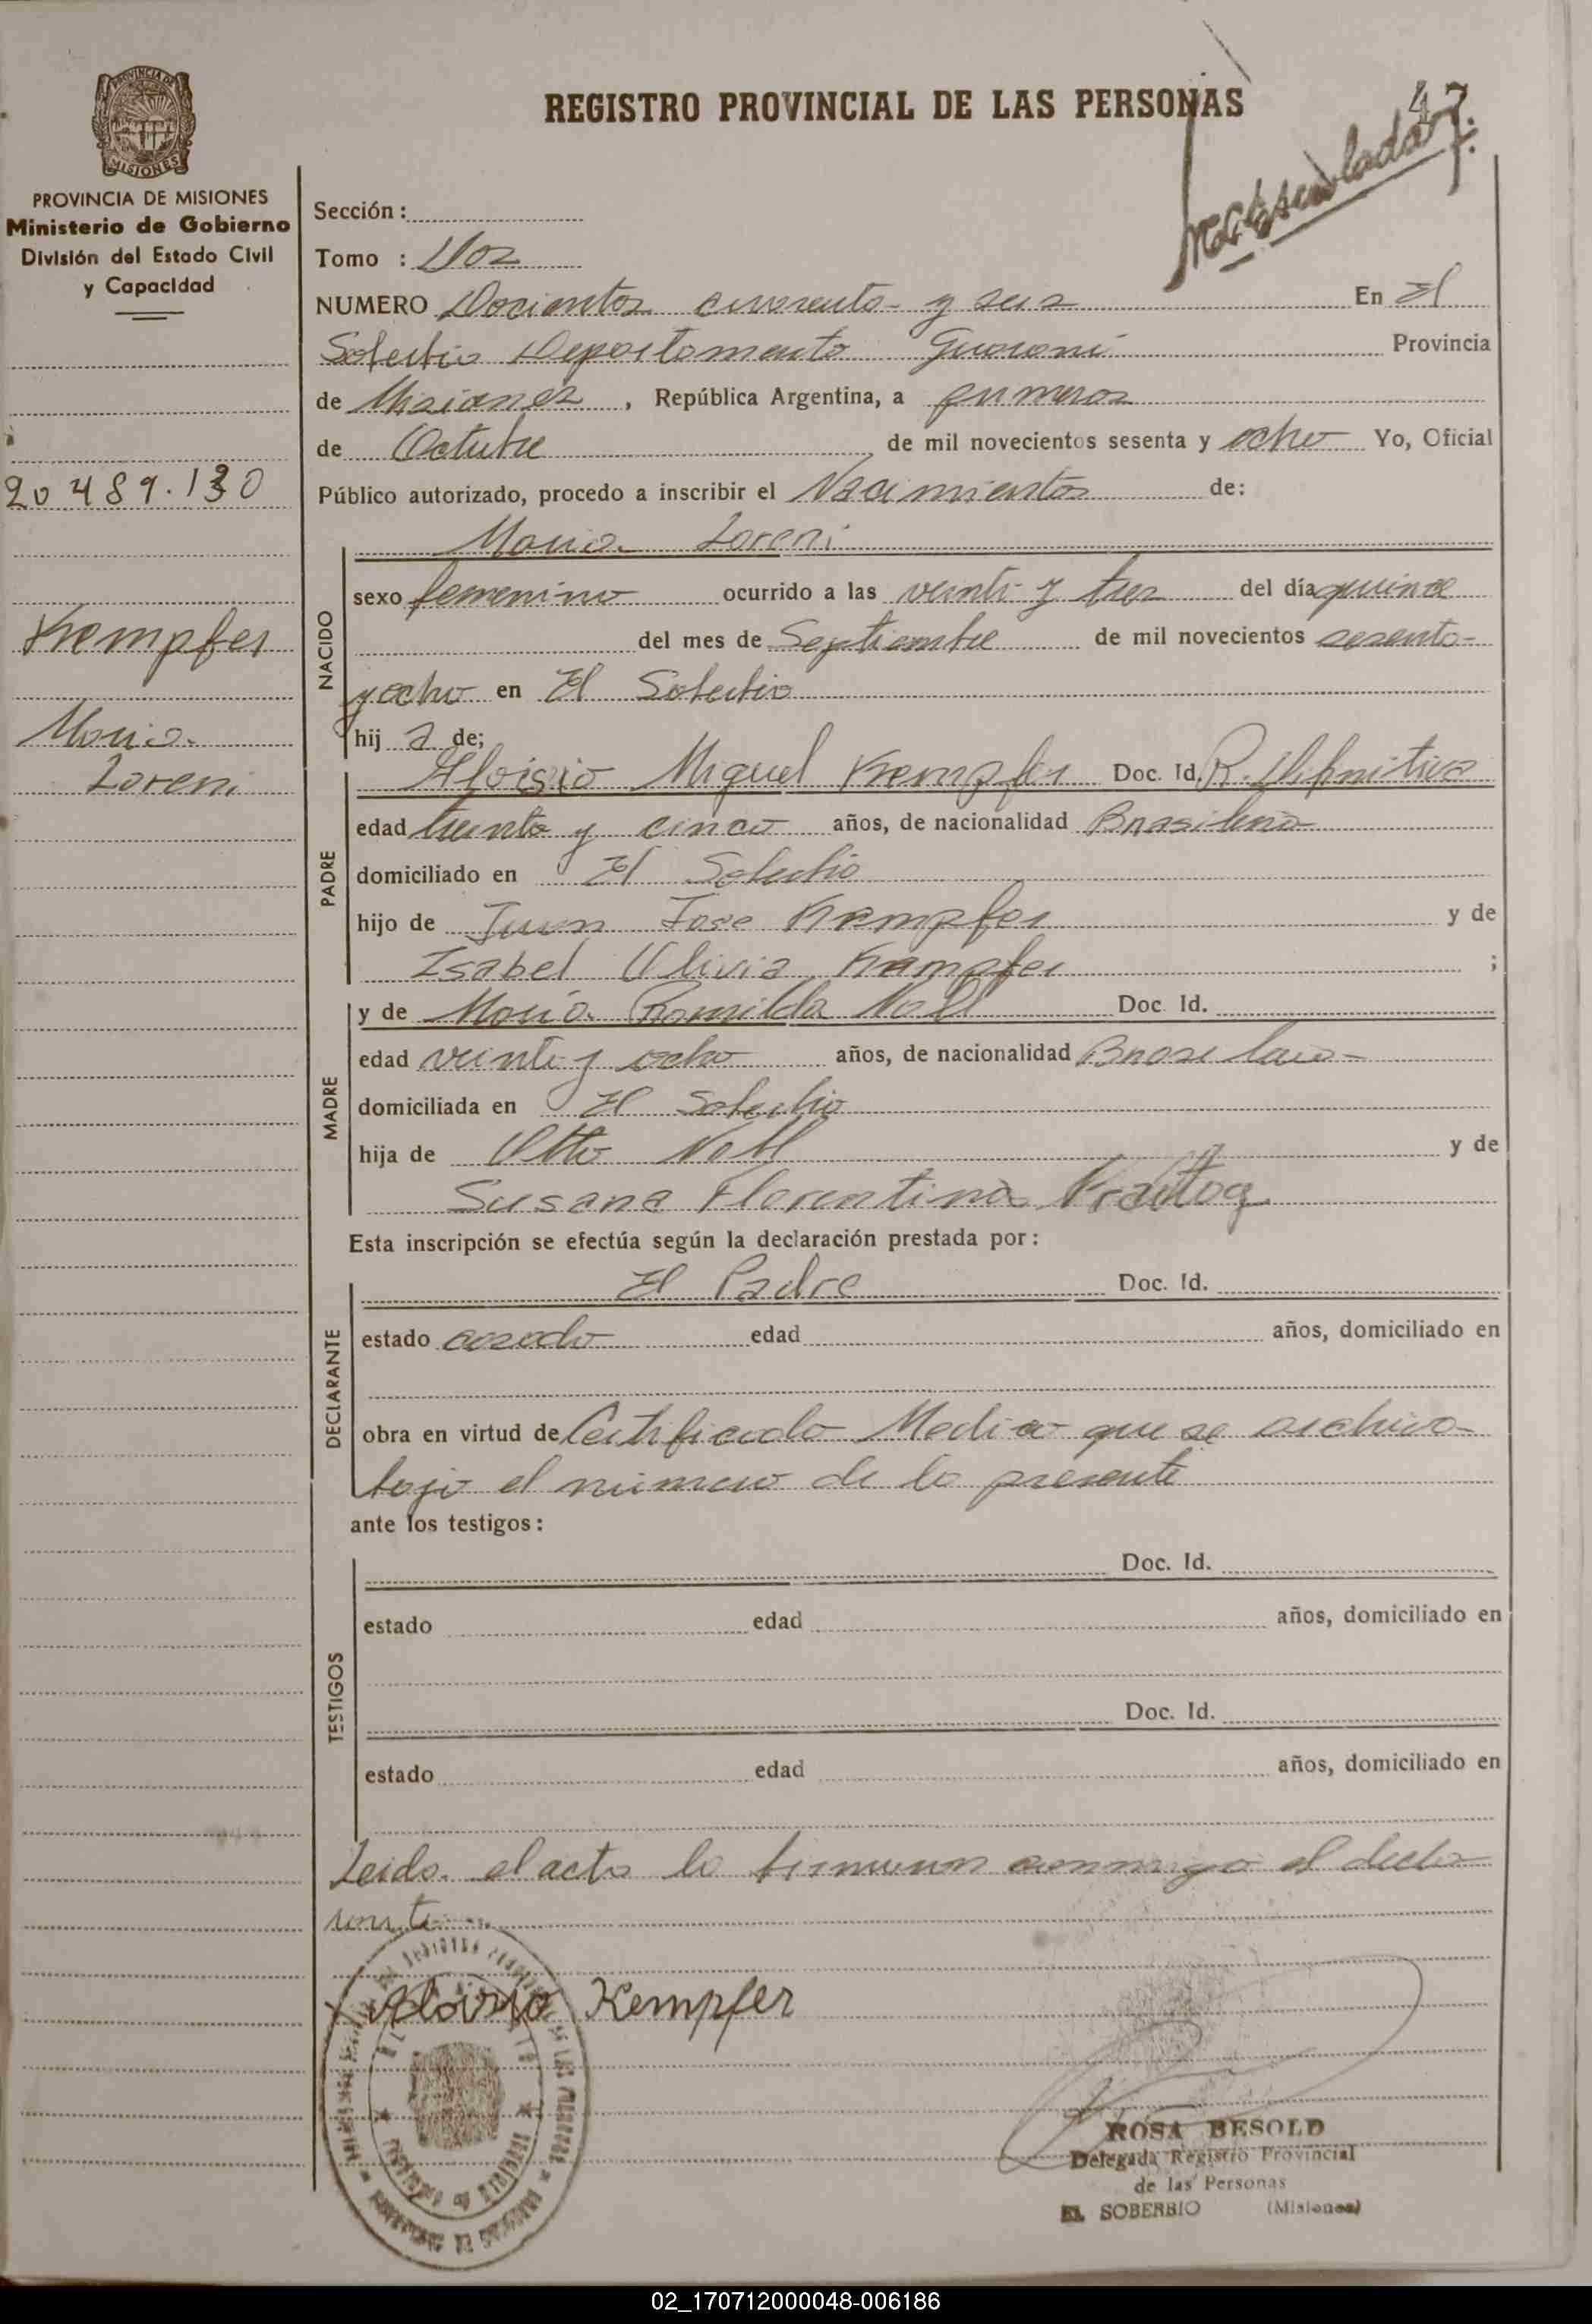 REGISTRO PROVINCIAL DE LAS PERSONAS
47
PROVINCIA DE MISIONES
PROVINCIA DE MISIONES
Ministerio de Gobierno
División del Estado Civil
y Capacidad
20 489.130
Kempfer
Maria
Loreni
Sección :
Tomo : Dos
NUMERO Docientos cuarenta y seis En El
Soberbio Departamento Guarani Provincia
de Misiones , República Argentina, a primeros
de Octubre de mil novecientos sesenta y ocho Yo, Oficial
Público autorizado, procedo a inscribir el Nacimiento de:
Maria Loreni
NACIDO
sexo femenino ocurrido a las veinti y tres del día quince
del mes de Septiembre de mil novecientos sesenta
y ocho en El Soberbio
hij a de;
PADRE
Aloisio Miguel Kempfer Doc. Id. R. Difinitiva
edad treinta y cinco años, de nacionalidad Brasilena
domiciliado en El Soberbio
hijo de Juan Jose Kempfer y de
Isabel Olivia Kempfer ;
MADRE
y de Maria Romilda Noll Doc. Id.
edad veinte y ocho años, de nacionalidad
domiciliada en El Soberbio
hija de Otto Noll y de
Susana Florentina
Esta inscripción se efectúa según la declaración prestada por :
DECLARANTE
El Padre Doc. Id.
estado casado edad años, domiciliado en
obra en virtud de Certificado Medico que se archiva
bajo el numero de la presente
ante los testigos :
TESTIGOS
Doc. Id.
estado edad años, domiciliado en
Doc. Id.
estado edad años, domiciliado en
Leida el acta la firman conmigo el decla
rante
Aloisio Kempfer
ROSA BESOLD
Delegada Registro Provincial
de las Personas
EL SOBERBIO (Misiones)
02_170712000048-006186